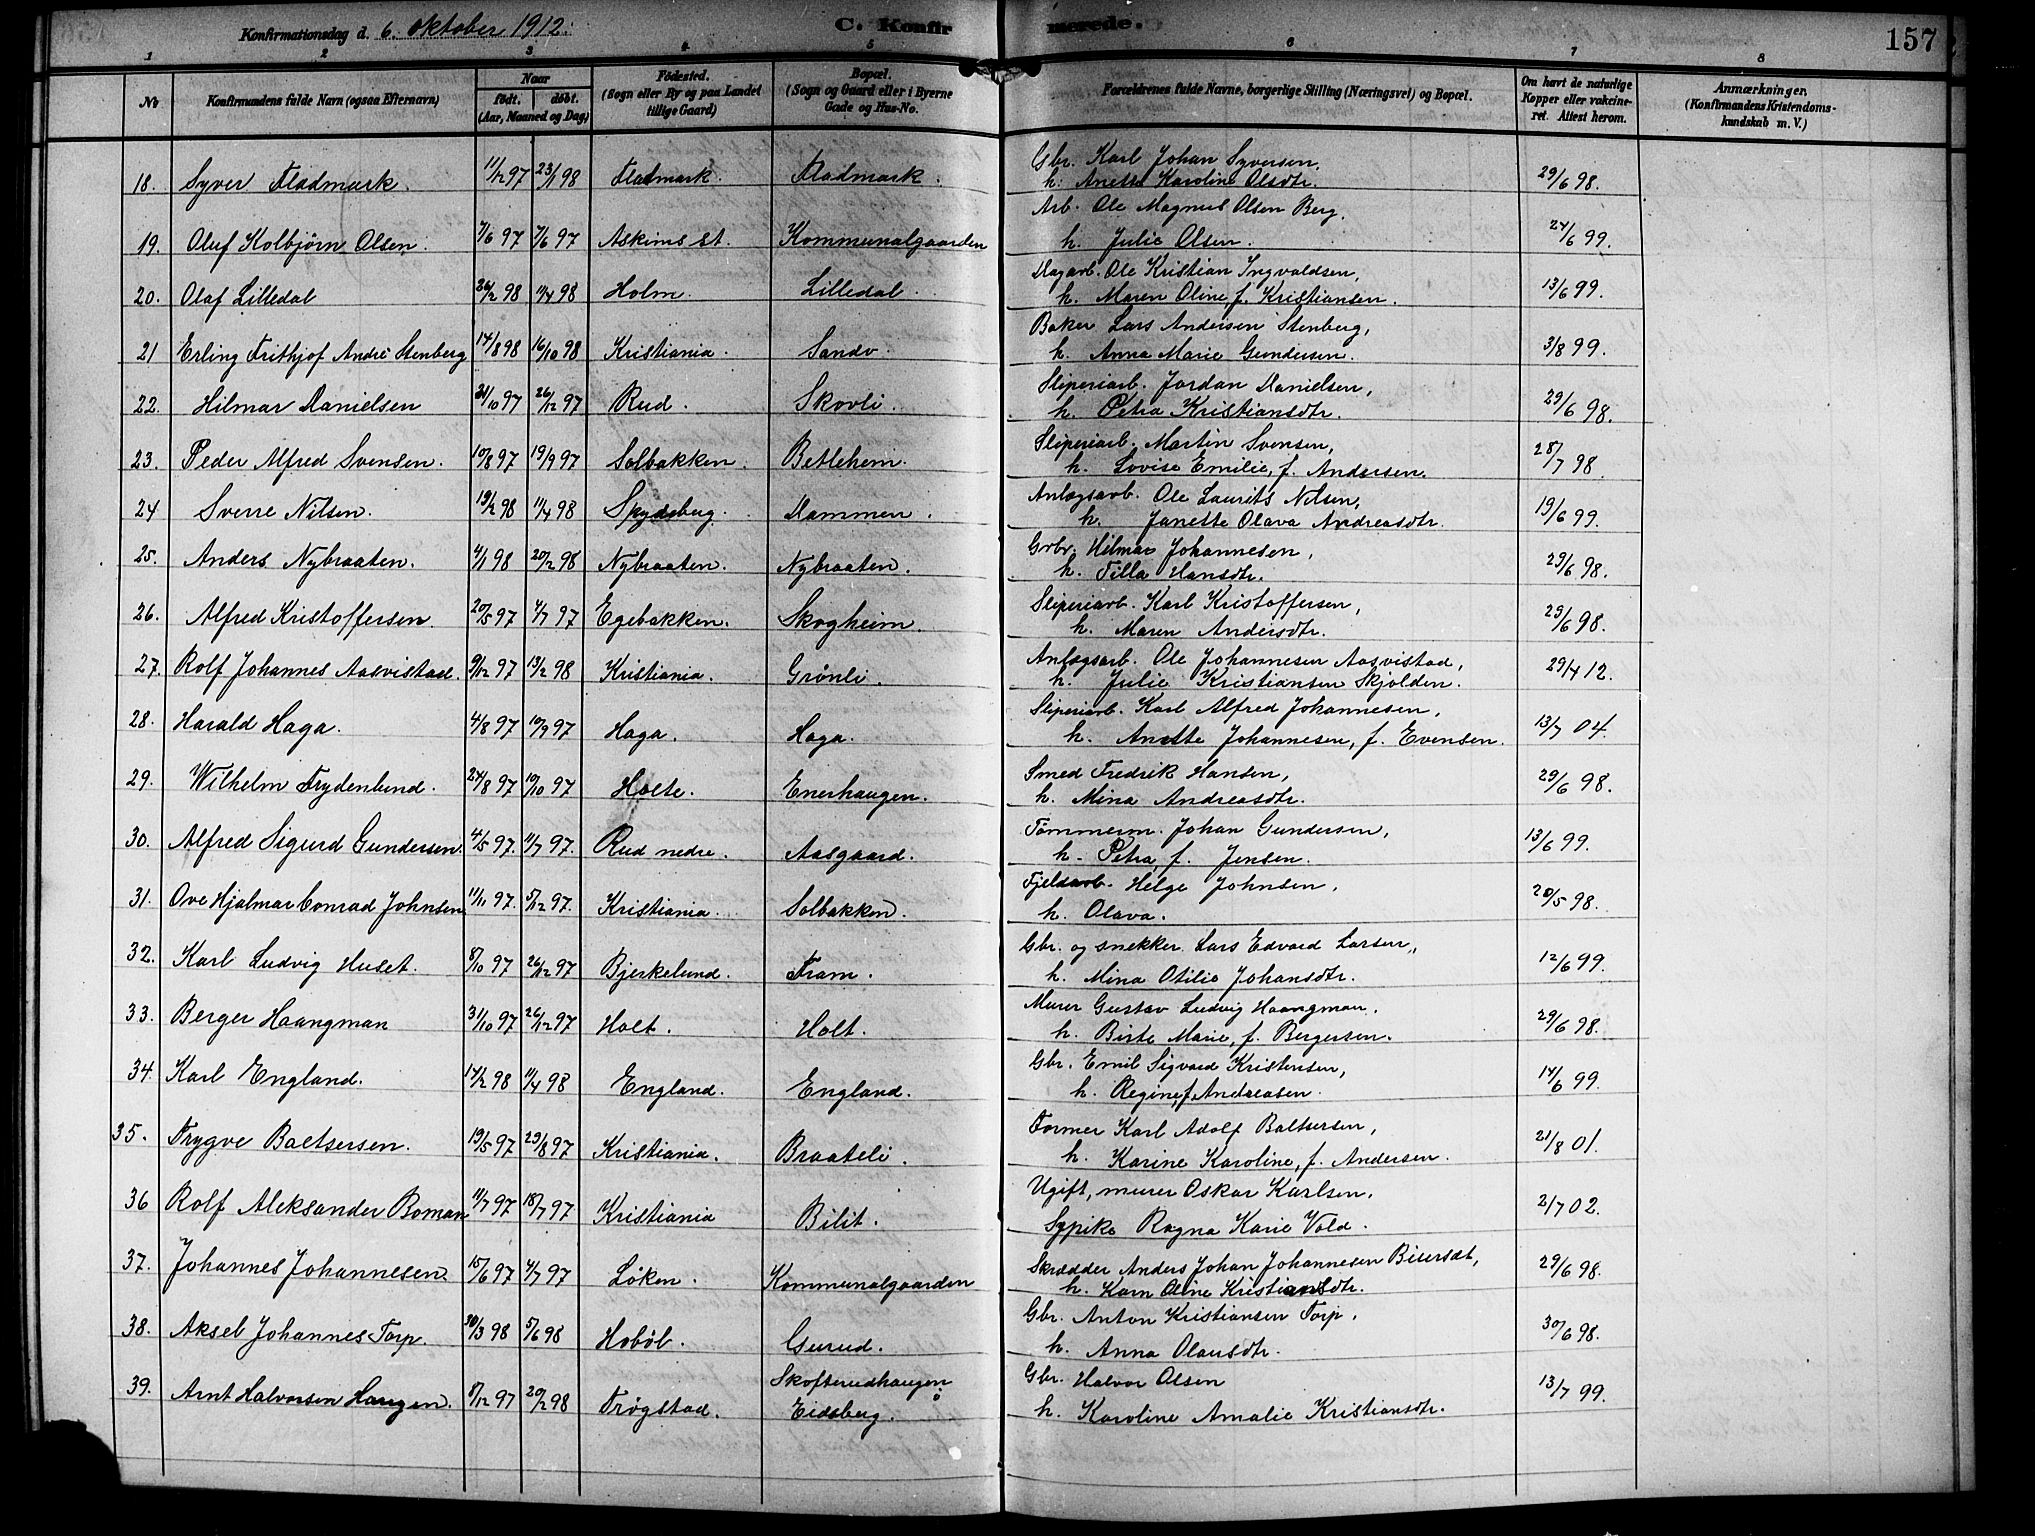 Konfirmationsdag d. 6. Oktober 1912.
C. Konfirmerede.
157
1 2 3 4 5 6 7 8
No
Konfirmandens fulde Navn (ogsaa Efternavn)
Naar
født. døbt.
(Aar, Maaned og Dag)
Fødested.
(Sogn eller By og paa Landet
tillige Gaard)
Bopæl.
(Sogn og Gaard eller i Byerne
Gade og Hus-No.
Forældrenes fulde Navne, borgerlige Stilling (Næringsvei) og Bopæl.
Om havt de naturlige
Kopper eller vakcine-
ret. Attest herom.
Anmærkninger.
(Konfirmandens Kristendoms-
kundskab m. V.)
18. Syver Fladmark. 11/12 97 23/1 98 Fladmark. Fladmark. Gbr. Karl Johan Syversen,
h. Anette Karoline Olsdtr. 29/6 98.
19. Oluf Kolbjørn Olsen. 7/6 97 7/6 97 Askims st. Kommunalgaarden Arb. Ole Magnus Olsen Berg.
h. Julie Olsen. 24/6 99.
20. Olaf Lilledal 26/2 98 11/4 98 Holm. Lilledal. Dagarb. Ole Kristian Ingvaldsen,
h. Maren Oline, f. Kristiansen. 13/6 99.
21 Erling Frithjof André Stenberg 14/8 98 16/10 98 Kristiania. Sandv. Baker Lars Andersen Stenberg,
h. Anna Marie Gundersen. 3/8 99.
22. Hilmar Danielsen 31/10 97 26/12 97 Rud. Skovli. Sliperiarb. Jordan Danielsen,
h. Petra Kristiansdtr. 29/6 98.
23. Peder Alfred Svensen. 10/8 97 19/9 97 Solbakken. Betlehem. Sliperiarb. Martin Svensen,
h. Lovise Emilie, f. Andersen. 28/7 98.
24 Sverre Nilsen. 19/2 98 11/4 98 Spydeberg. Dammen. Anlægsarb. Ole Laurits Nilsen,
h. Janette Olava Andreasdtr. 19/6 99.
25. Anders Nybraaten. 4/1 98 20/2 98 Nybraaten. Nybraaten. Grbr. Hilmar Johannesen,
h. Tilla Hansdtr. 29/6 98.
26. Alfred Kristoffersen. 20/5 97 4/7 97 Egebakken. Skogheim. Sliperiarb. Karl Kristoffersen,
h. Maren Andersdtr. 29/6 98.
27. Rolf Johannes Aasvistad. 9/12 97 13/2 98 Kristiania. Grönli. Anlægsarb. Ole Johannesen Aasvistad,
h. Julie Kristiansen Skjolden. 29/4 12.
28. Harald Haga. 4/8 97 19/9 97 Haga. Haga. Sliperiarb. Karl Alfred Johannesen,
h. Anette Johannesen, f. Evensen. 13/7 04.
29. Wilhelm Frydenlund. 24/8 97 10/10 97 Holte. Enerhaugen. Smed Fredrik Hansen,
h. Mina Andreasdtr. 29/6 98.
30. Alfred Sigurd Gundersen. 4/5 97. 11/7 97. Rud nedre. Aasgaard. Tömmerm. Johan Gundersen,
h. Petra, f. Jensen. 13/6 99.
31. Ove Hjalmar Conrad Johnsen 11/11 97. 5/12 97. Kristiania. Solbakken. Fjeldarb. Helge Johnsen,
h. Olava. 20/5 98.
32. Karl Ludvig Huset. 8/10 97 26/12 97 Bjerkelund. Fram. Gbr. og snekker. Lars Edvard Larsen,
h. Mina Otilie Johansdtr. 12/6 99.
33. Berger Haangman 31/10 97 26/12 97 Holt. Holt. Murer Gustav Ludvig Haangman,
h. Birte Marie, f. Bergersen. 29/6 98.
34. Karl England. 14/2 98 11/4 98 England. England. Gbr. Emil Sigvard Kristensen,
h. Regine, f. Andreasen. 14/6 99.
35. Trygve Baltsersen. 19/5 97 29/8 97 Kristiania. Braateli. Former Karl Adolf Baltsersen,
h. Karine Karoline, f. Andersen. 21/8 01.
36 Rolf Aleksander Boman 11/7 97 18/7 97 Kristiania Bilit. Ugift, murer Oskar Karlsen,
Sypike Ragna Karie Vold. 2/7 02.
37. Johannes Johannesen 15/6 97 4/7 97 Løken. Kommunalgaarden Skrædder Anders Johan Johannesen
h. Karn Oline Kristiansdtr. 29/6 98.
38. Aksel Johannes Torp. 30/3 98 5/6 98 Hobøl. Gurud. Gbr. Anton Kristiansen Torp,
h. Anna Olausdtr. 30/6 98.
39. Arnt Halvorsen Haugen. 8/12 97 20/2 98 Trøgstad. Skofterudhaugen
Eidsberg. Gbr. Halvor Olsen
h. Karoline Amalie Kristiansdtr. 13/7 99.